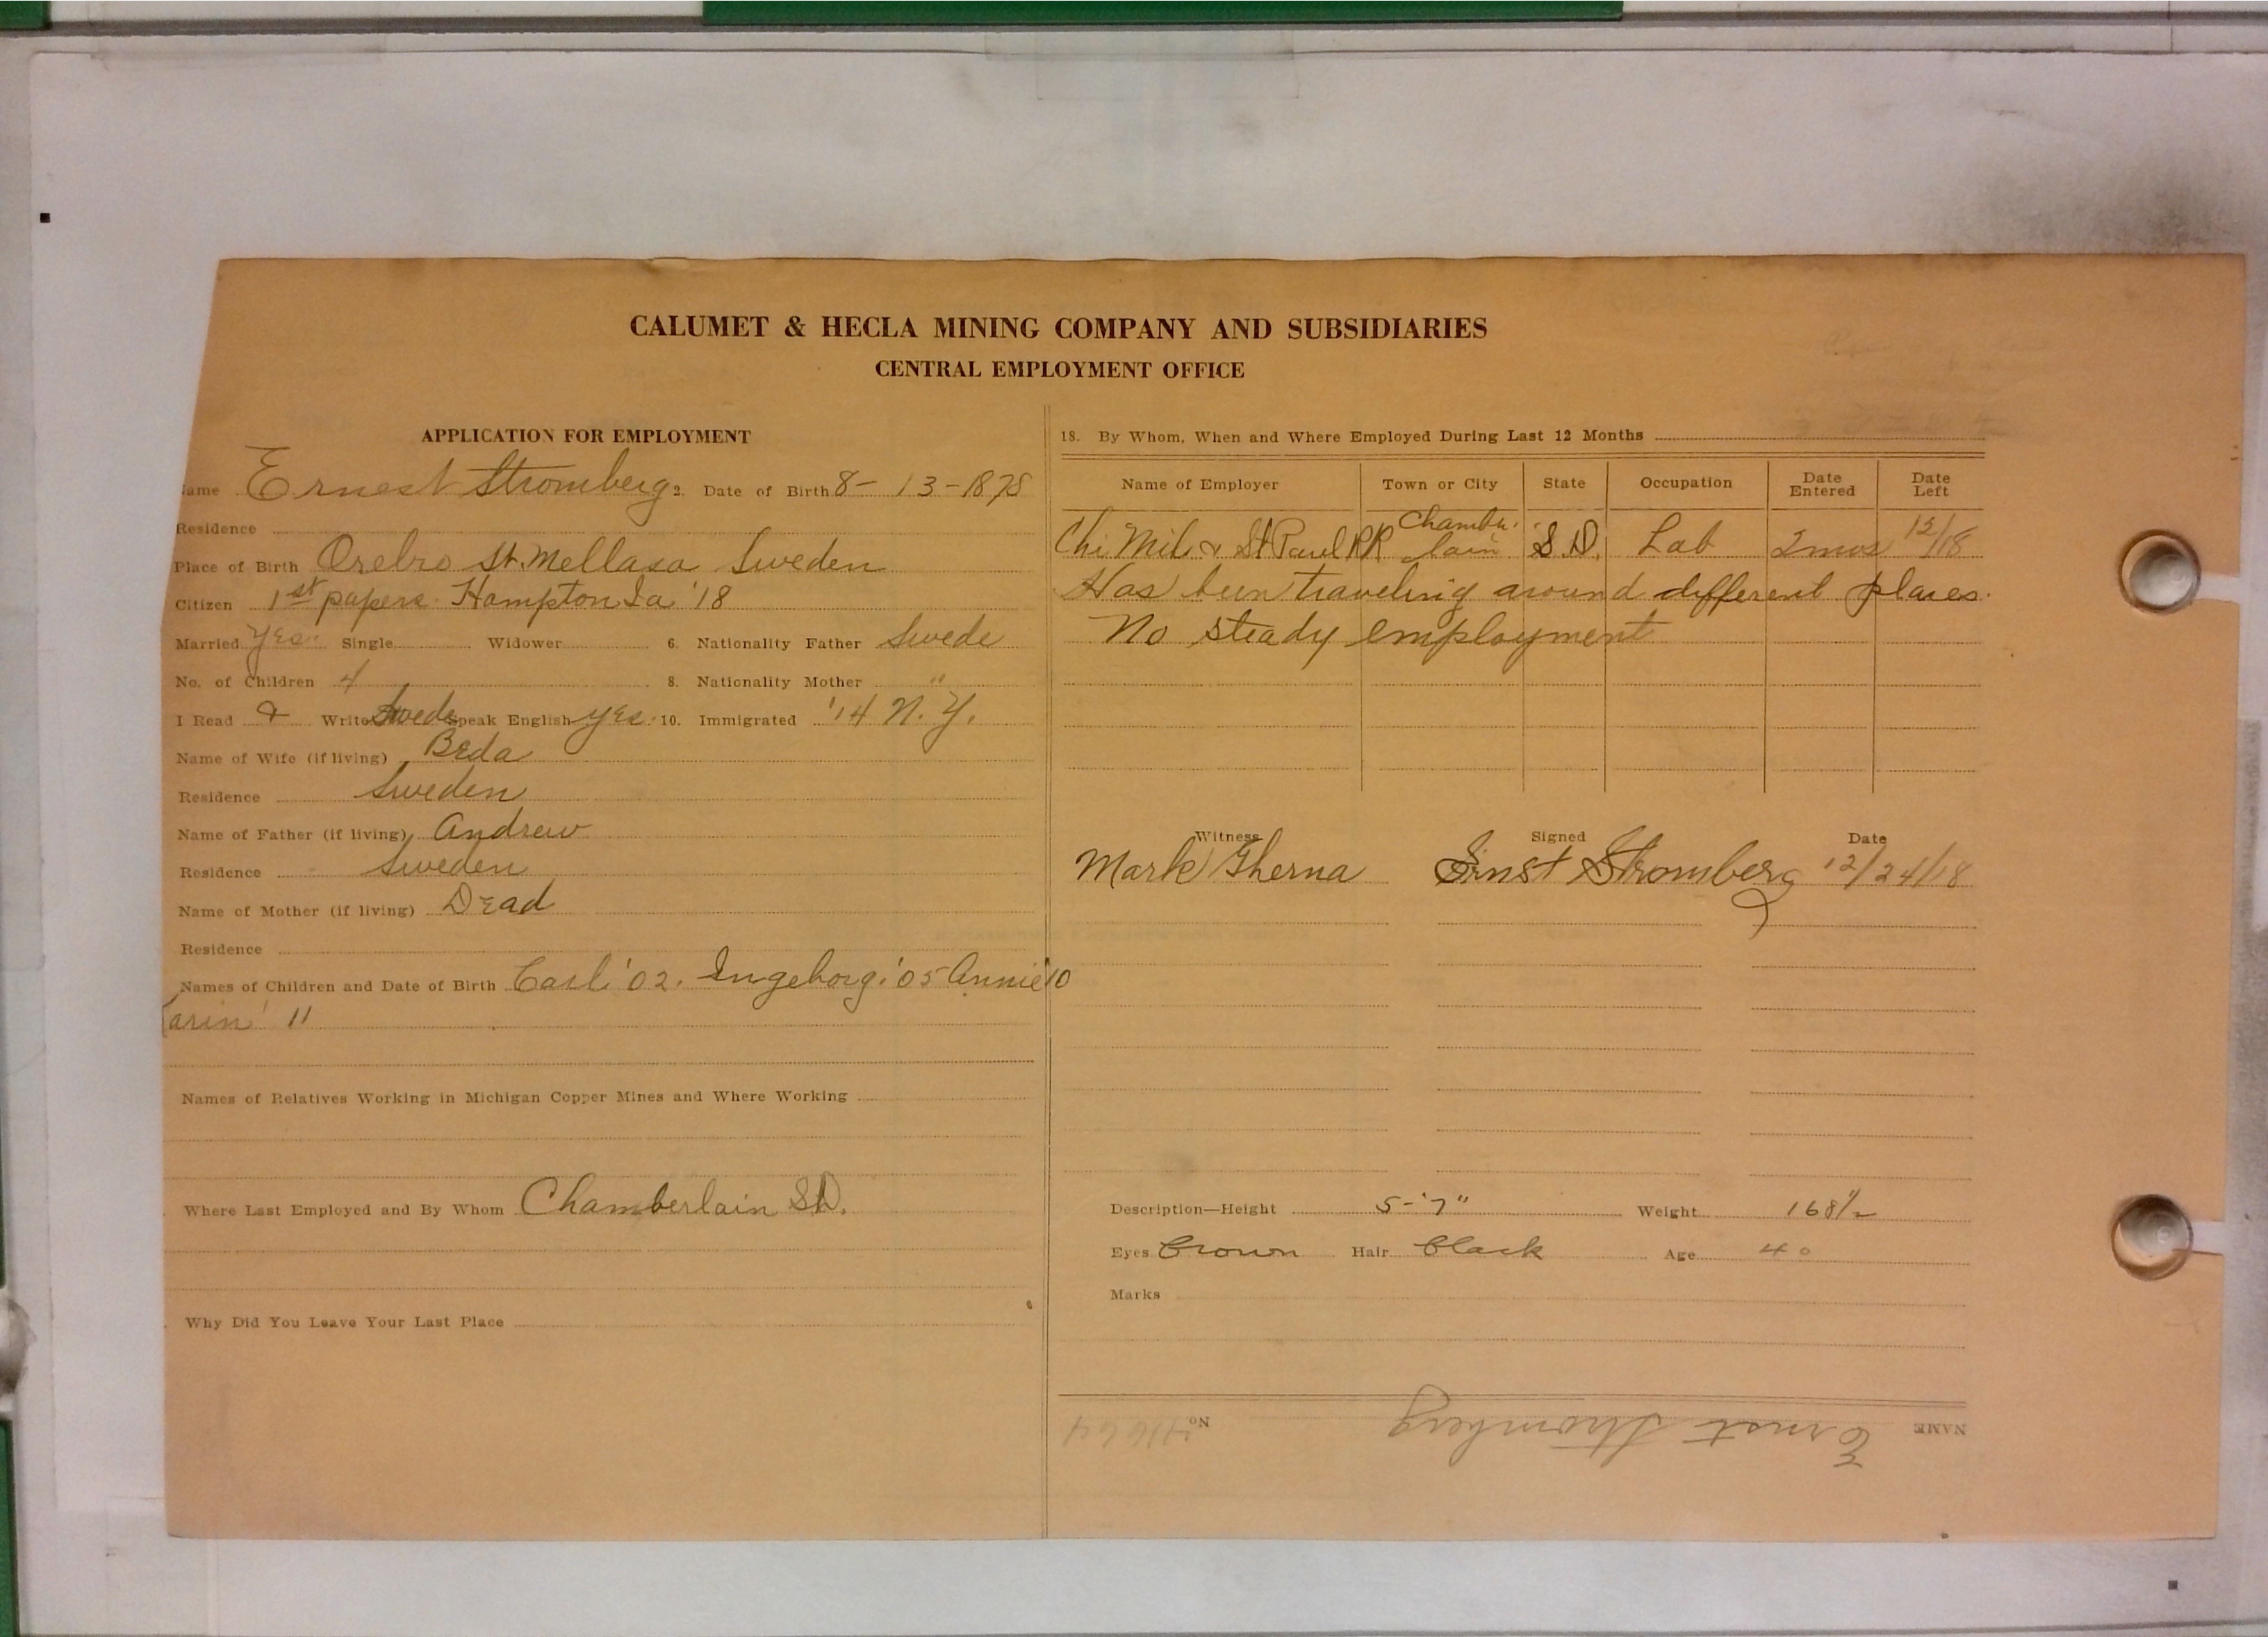 CALUMET & HECLA MINING COMPANY AND SUBSIDIARIES
CENTRAL EMPLOYMENT OFFICE
APPLICATION FOR EMPLOYMENT
ame Ernest Stromberg 2. Date of Birth 8- 13-1878
Residence
Place of Birth Orebro St. Mellasa Sweden
Citizen 1st papers Hampton Ia '18
Married yes. Single Widower 6. Nationality Father Swede
No. of Children 4 8. Nationality Mother "
I Read & Write Swede Speak English yes. 10. Immigrated '14 N.Y.
Name of Wife (if living) Beda
Residence Sweden
Name of Father (if living) Andrew
Residence Sweden
Name of Mother (if living) Dead
Residence
Names of Children and Date of Birth Carl '02. Ingeborg '05 Annie '10
arin '11
Names of Relatives Working in Michigan Copper Mines and Where Working
Where Last Employed and By Whom Chamberlain S.D.
Why Did You Leave Your Last Place
18. By Whom, When and Where Employed During Last 12 Months
Name of Employer Town or City State Occupation Date Entered Date Left
Chi Mil & St Paul RR Chamber lain S.D. Lab 2 mos 12/18
Has been traveling around different places.
No steady employment
Witness Signed Date
Mark Gherna Ernst Stromberg 12/24/18
Description—Height 5-'7" Weight 168 1/2
Eyes Brown Hair Black Age 40
Marks
NAME Ernest Stromberg No.